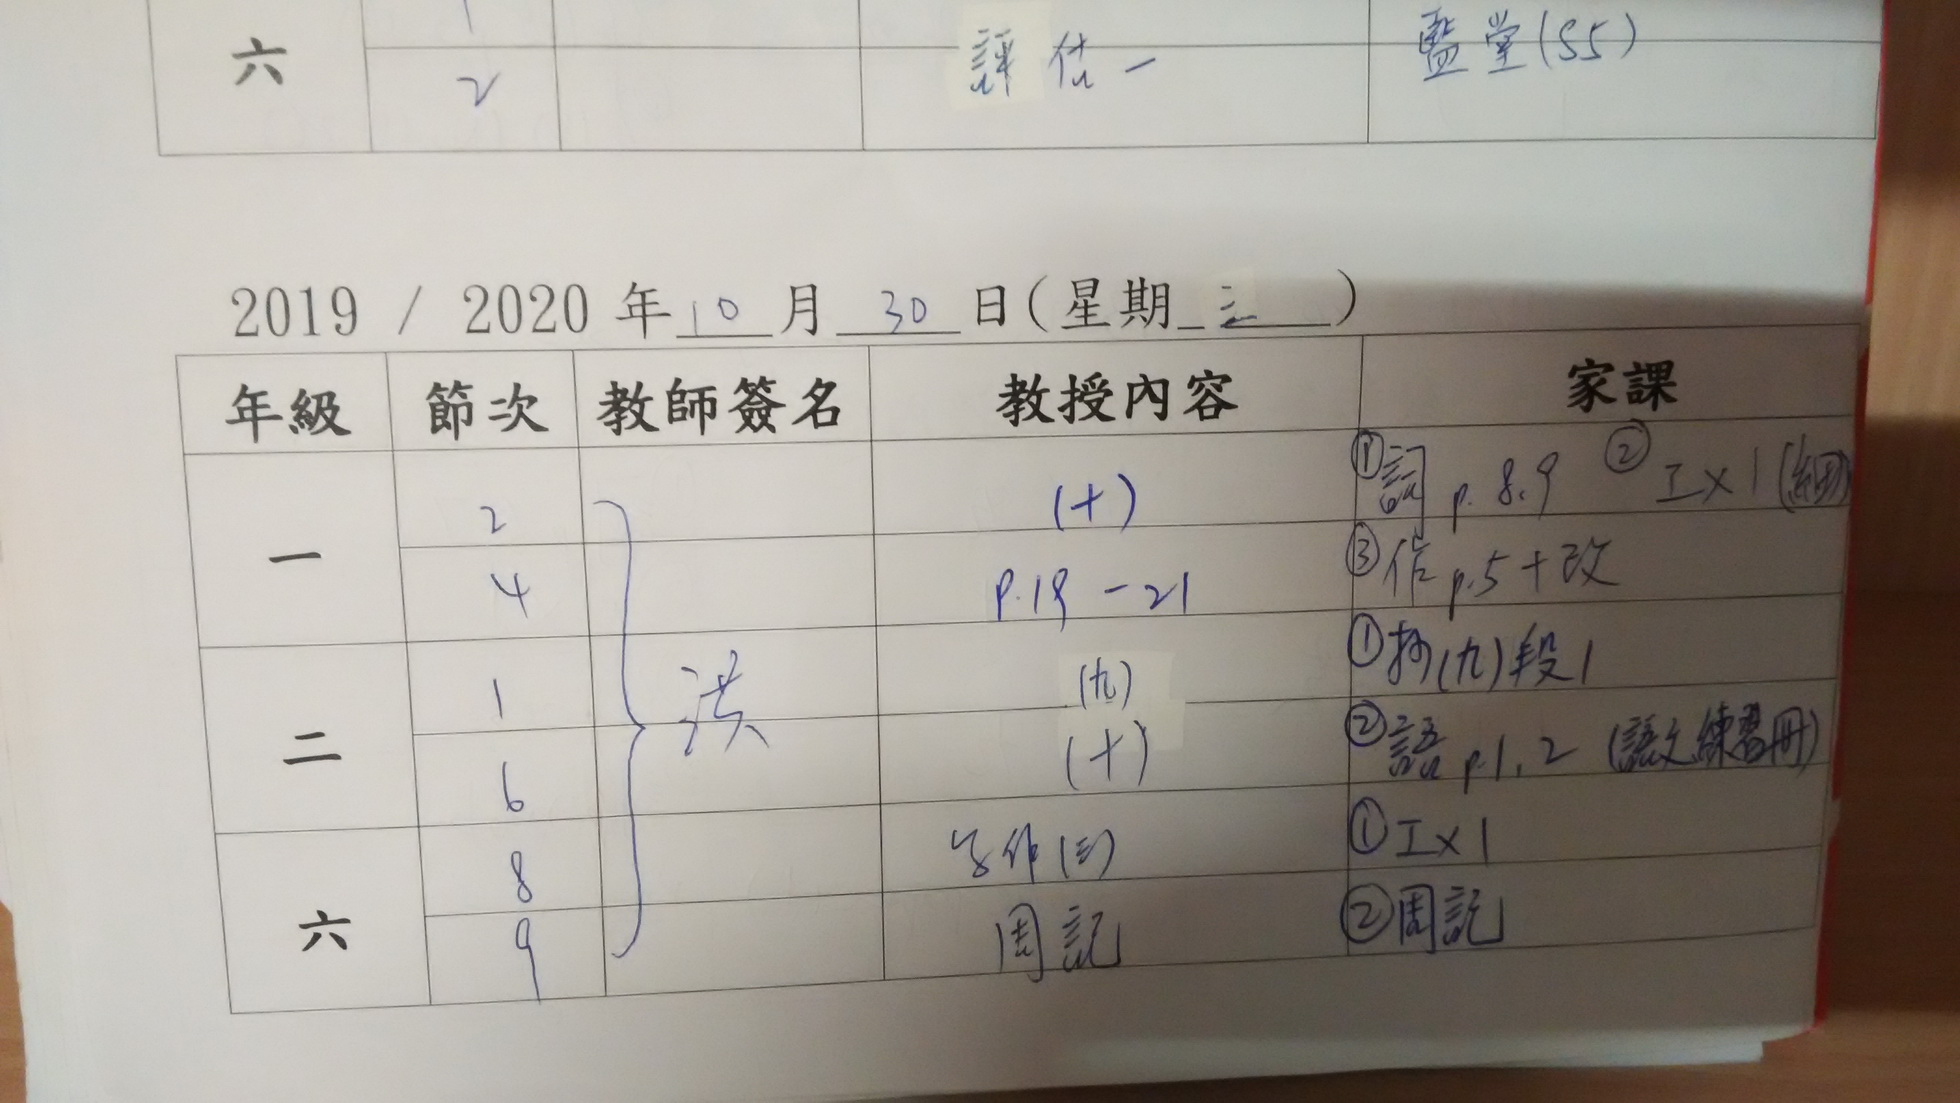 六
2
評估一
藍堂(S5)
2019 / 2020 年 10 月 30 日(星期 三 )
年級 節次 教師簽名 教授內容 家課
一
2 (十) ①詞 p. 8.9 ② 工x1(細)
4 P.19-21 ③作 p.5+改
洪
二
1 (九) ①抄(九)段1
6 (十) ②語 p.1.2 (語文練習冊)
六
8 寫作(三) ①工x1
9 周記 ②周記